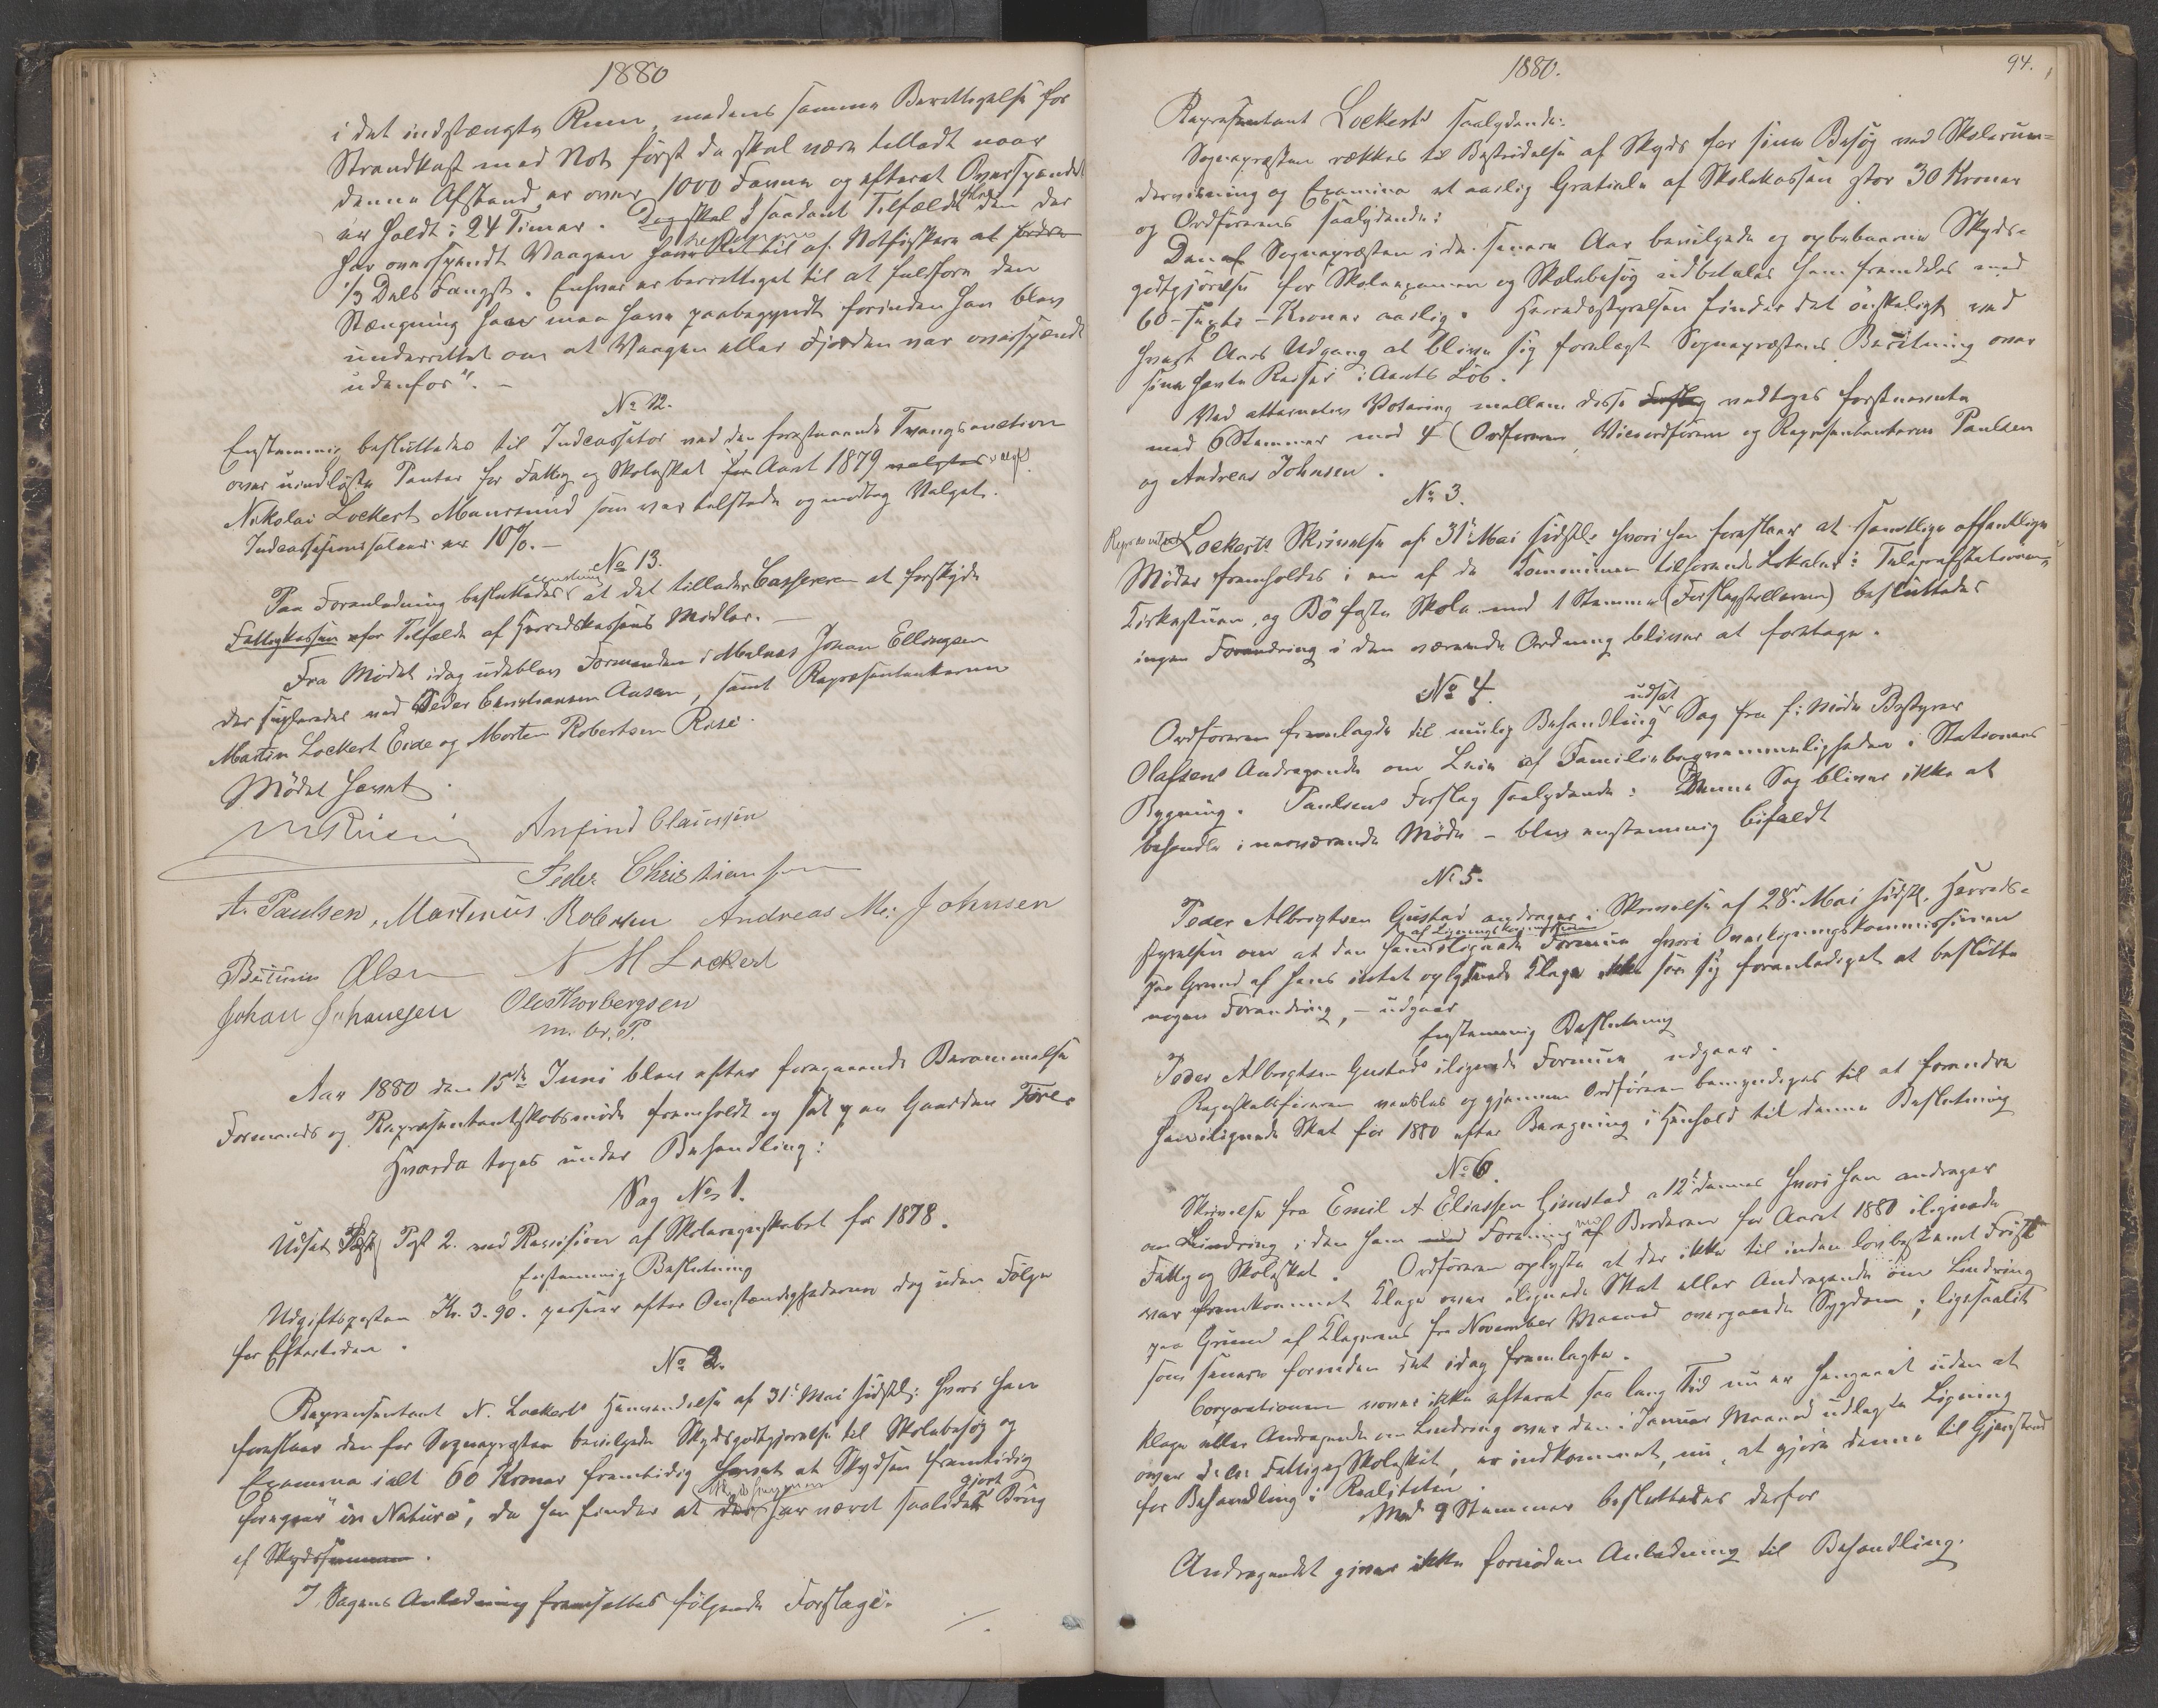 1880
i det indstængte Rum, medens samme Berettigelse for
Strandkast med Not først da skal være tilladt naar
denne Afstand er over 1000 Favne og efterat Overspændet
er holdt i 24 Timer. Dog skal I saadant Tilfælde skal den der
har overspændt Vaagen have Ret til af Notfiskere at fordre
1/3 Dels Fangst. Enhver er berettiget til at fuldføre den
Stængning han maa have paabegyndt forinden han blev
underrettet om at Vaagen eller Fjorden var overspændt
udenfor". –
No 12.
Enstemmig besluttedes til Indcassator ved den forestaaende Tvangsauction
over uindløste Panter for Fattig og Skoleskat for Aaret 1879 valgtes valgt
Nikolai Lockert Maursund som var tilstede og modtog Valget.
Indcassationssalair er 10%. –
No 13.
Paa Foranledning besluttedes enstemmig at det tillades Cassereren at forskyde
Fattigkassen for Tilfælde af Herredskassens Midler. –
Fra Mødet idag udeblev Formanden i Melnes Johan Ellingsen
der supleredes ved Peder Christiansen Aasen, samt Repræsentanterne
Martin Lockert Eide og Morten Robertsen Risè.
Mødet hævet.
Anfind Claussen
Peder Christiansen
A. Paulsen, Martinus Robertsen Andreas M: Johnsen
Olsen N M Lockert
Johan Johansen Ole Thorbergsen
m. br. P.
Aar 1880 den 15de Juni blev efter foregaaende Berammelse
Formands og Repræsentantskabsmøde fremholdt og sat paa Gaarden Føre.
Hvorda toges under Behandling:
Sag No 1.
Udsat Post 2. ved Revision af Skoleregnskabet for 1878.
Enstemmig Beslutning
Udgiftsposten Kr. 3.90. passerer efter Omstændighederne dog uden Følge
for Eftertiden.
No 2.
Repræsentant N. Lockerts Henvendelse af 31te Mai sidstl: hvori han
foreslaar den for Sognepræsten bevilgede Skydsgodtgjørelse til Skolebesøg og
Examina ialt 60 Kroner fremtidig hævet at Skydsen fremtidig
foregaar "in Natura", da han finder at der har været saalidet gjort Brug
af Skydssummen.
I Sagens Anledning fremsattes følgende Forslage:
./.
1880.
94.
Repræsentant Lockerts saalydende:
Sognepræsten rækkes til Bestridelse af Skyds for sine Besøg ved Skoleun=
dervisning og Examina et aarlig Gratiale af Skolekassen stor 30 Kroner
og Ordførerens saalydende:
Den af Sognepræsten i de senere Aar bevilgede og oppebaarne Skyds-
godtgjørelse for Skoleexamen og Skolebesøg udbetales ham fremdeles med
60-sexti-Kroner aarlig. Herredsstyrelsen finder det ønskeligt ved
hvert Aars Udgang at blive sig forelagt Sognepræstens Beretning over
sine havte Reiser i Aarets Løb.
Ved alternativ Votering mellem disse Forslag vedtoges førstnævnte
med 6 Stemmer mod 4 (Ordføreren, Viceordføreren og Repræsentanterne Paulsen
og Andreas Johnsen.
No 3.
Repræsentant Lockerts Skrivelse af 31te Mai sidstl. hvori han foreslaar at samtlige offentlige
Møder fremholdes i en af de Kommunen tilhørende Lokaler: Telegrafstationen,
Kirkestuen, og Bø faste Skole – med 1 Stemme (Forslagstilleren) besluttedes
ingen Forandring i den værende Ordning bliver at foretage.
No 4.
Ordføreren fremlagde til mulig Behandling udsat Sag fra f: Møde Bestyrer
Olafsens Andragende om Leie af Familiebeqvemmeligheden i Stationens
Bygning. Paulsens Forslag saalydende: Denne Sag bliver ikke at
behandle i nærværende Møde – blev enstemmig bifaldt
No 5.
Peder Albregtsen Gustad andrager i Skrivelse af 28de Mai sidstl. Herreds-
styrelsen om at den ham af Ligningskommissionen ilignede Formue hvori Overligningskommissionen
paa Grund af hans intet oplysende Klage ikke saa sig foranlediget at beslutte
nogen Forandring, – udgaar
Enstemmig Beslutning
Peder Albregtsen Gustads ilignede Formue udgaar.
Regnskabsføreren varsles og gjennem Ordføreren bemyndiges til at forandre
hans ilignede Skat for 1880 efter Beregning i Henhold til denne Beslutning
No 6.
Skrivelse fra Emil A Eliassen Gimstad a 12te dennes hvori han andrager
om Lindring i den ham med Forening med af Broderen for Aaret 1880 ilignede
Fattig og Skoleskat. Ordføreren oplyste at der ikke til inden lovbestemt Frist
var fremkommet Klage over ilignede Skat eller Andragende om Lindring
paa Grund af Klagerens fra November Maaned overgaaede Sygdom, ligesaalidt
som senere forinden det idag fremlagte.
Corporationen vover ikke efterat saa lang Tid nu er hengaaet uden at
Klage eller Andragende om Lindring over den i Januar Maaned udlagte Ligning
over d: A: Fattig og Skoleskat, er indkommet, nu, at gjøre denne til Gjenstand
for Behandling i Realiteten.
Med 9 Stemmer besluttedes derfor
Andragendet giver ikke fornøden Anledning til Behandling.